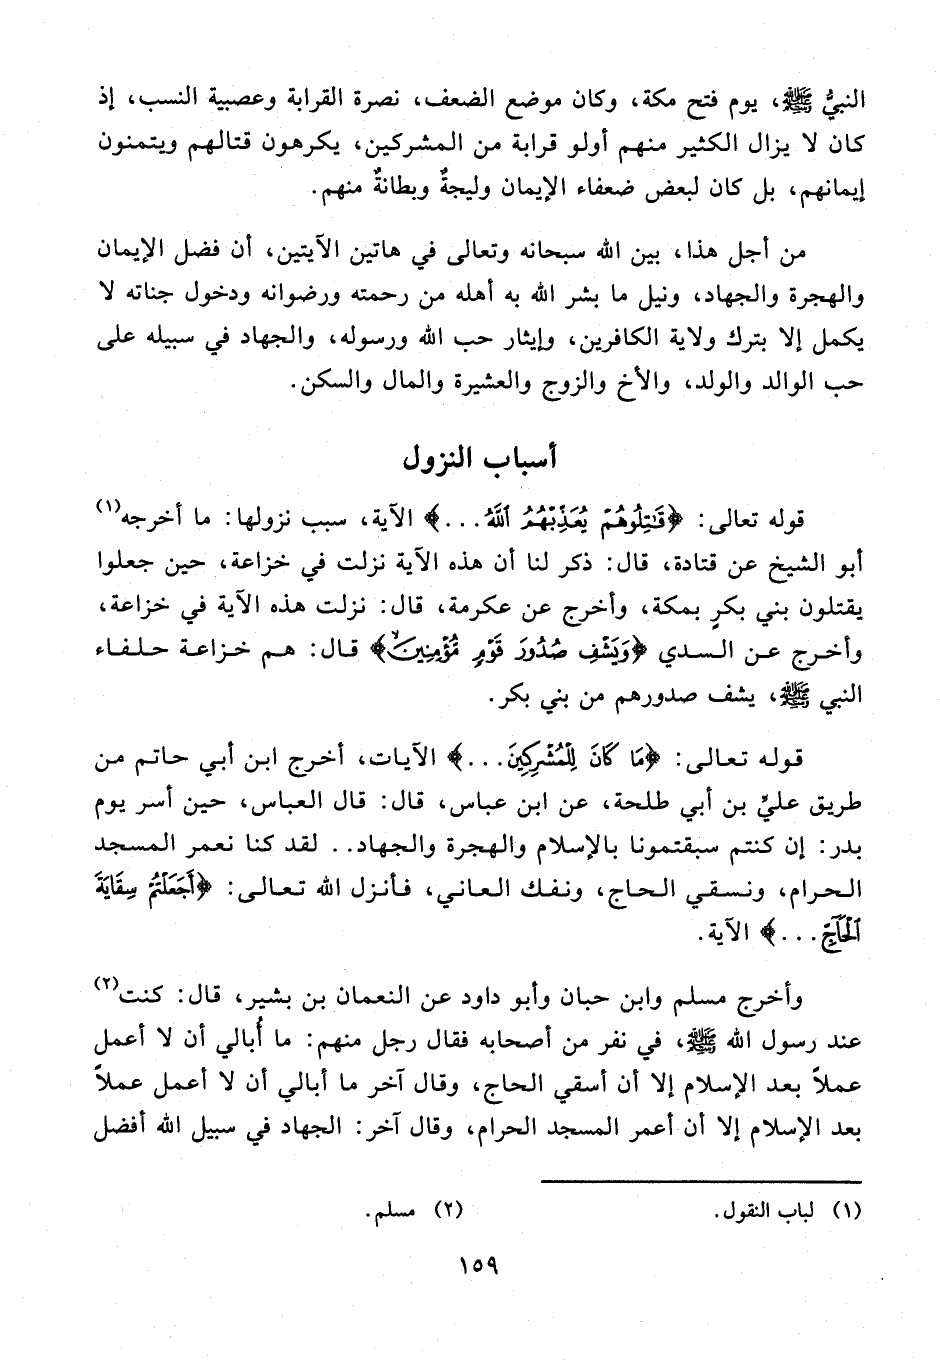 النبيُّ ﷺ، يوم فتح مكة، وكان موضع الضعف، نصرة القرابة وعصبية النسب، إذ
كان لا يزال الكثير منهم أولو قرابة من المشركين، يكرهون قتالهم ويتمنون
إيمانهم، بل كان لبعض ضعفاء الإيمان وليجةٌ وبطانةٌ منهم.
من أجل هذا، بين الله سبحانه وتعالى في هاتين الآيتين، أن فضل الإيمان
والهجرة والجهاد، ونيل ما بشر الله به أهله من رحمته ورضوانه ودخول جناته لا
يكمل إلا بترك ولاية الكافرين، وإيثار حب الله ورسوله، والجهاد في سبيله على
حب الوالد والولد، والأخ والزوج والعشيرة والمال والسكن.
أسباب النزول
قوله تعالى: ﴿قَٰتِلُوهُمْ يُعَذِّبْهُمُ ٱللَّهُ...﴾ الآية، سبب نزولها: ما أخرجه(١)
أبو الشيخ عن قتادة، قال: ذكر لنا أن هذه الآية نزلت في خزاعة، حين جعلوا
يقتلون بني بكرٍ بمكة، وأخرج عن عكرمة، قال: نزلت هذه الآية في خزاعة،
وأخرج عن السدي ﴿وَيَشْفِ صُدُورَ قَوْمٍ مُّؤْمِنِينَۙ﴾ قال: هم خزاعة حلفاء
النبي ﷺ، يشف صدورهم من بني بكر.
قوله تعالى: ﴿مَا كَانَ لِلْمُشْرِكِينَ...﴾ الآيات، أخرج ابن أبي حاتم من
طريق عليِّ بن أبي طلحة، عن ابن عباس، قال: قال العباس، حين أسر يوم
بدر: إن كنتم سبقتمونا بالإسلام والهجرة والجهاد.. لقد كنا نعمر المسجد
الحرام، ونسقي الحاج، ونفك العاني، فأنزل الله تعالى: ﴿أَجَعَلْتُمْ سِقَايَةَ
ٱلْحَآجِّ...﴾ الآية.
وأخرج مسلم وابن حبان وأبو داود عن النعمان بن بشير، قال: كنت(٢)
عند رسول الله ﷺ، في نفر من أصحابه فقال رجل منهم: ما أُبالي أن لا أعمل
عملاً بعد الإسلام إلا أن أسقي الحاج، وقال آخر ما أبالي أن لا أعمل عملاً
بعد الإسلام إلا أن أعمر المسجد الحرام، وقال آخر: الجهاد في سبيل الله أفضل
(١) لباب النقول. (٢) مسلم.
١٥٩